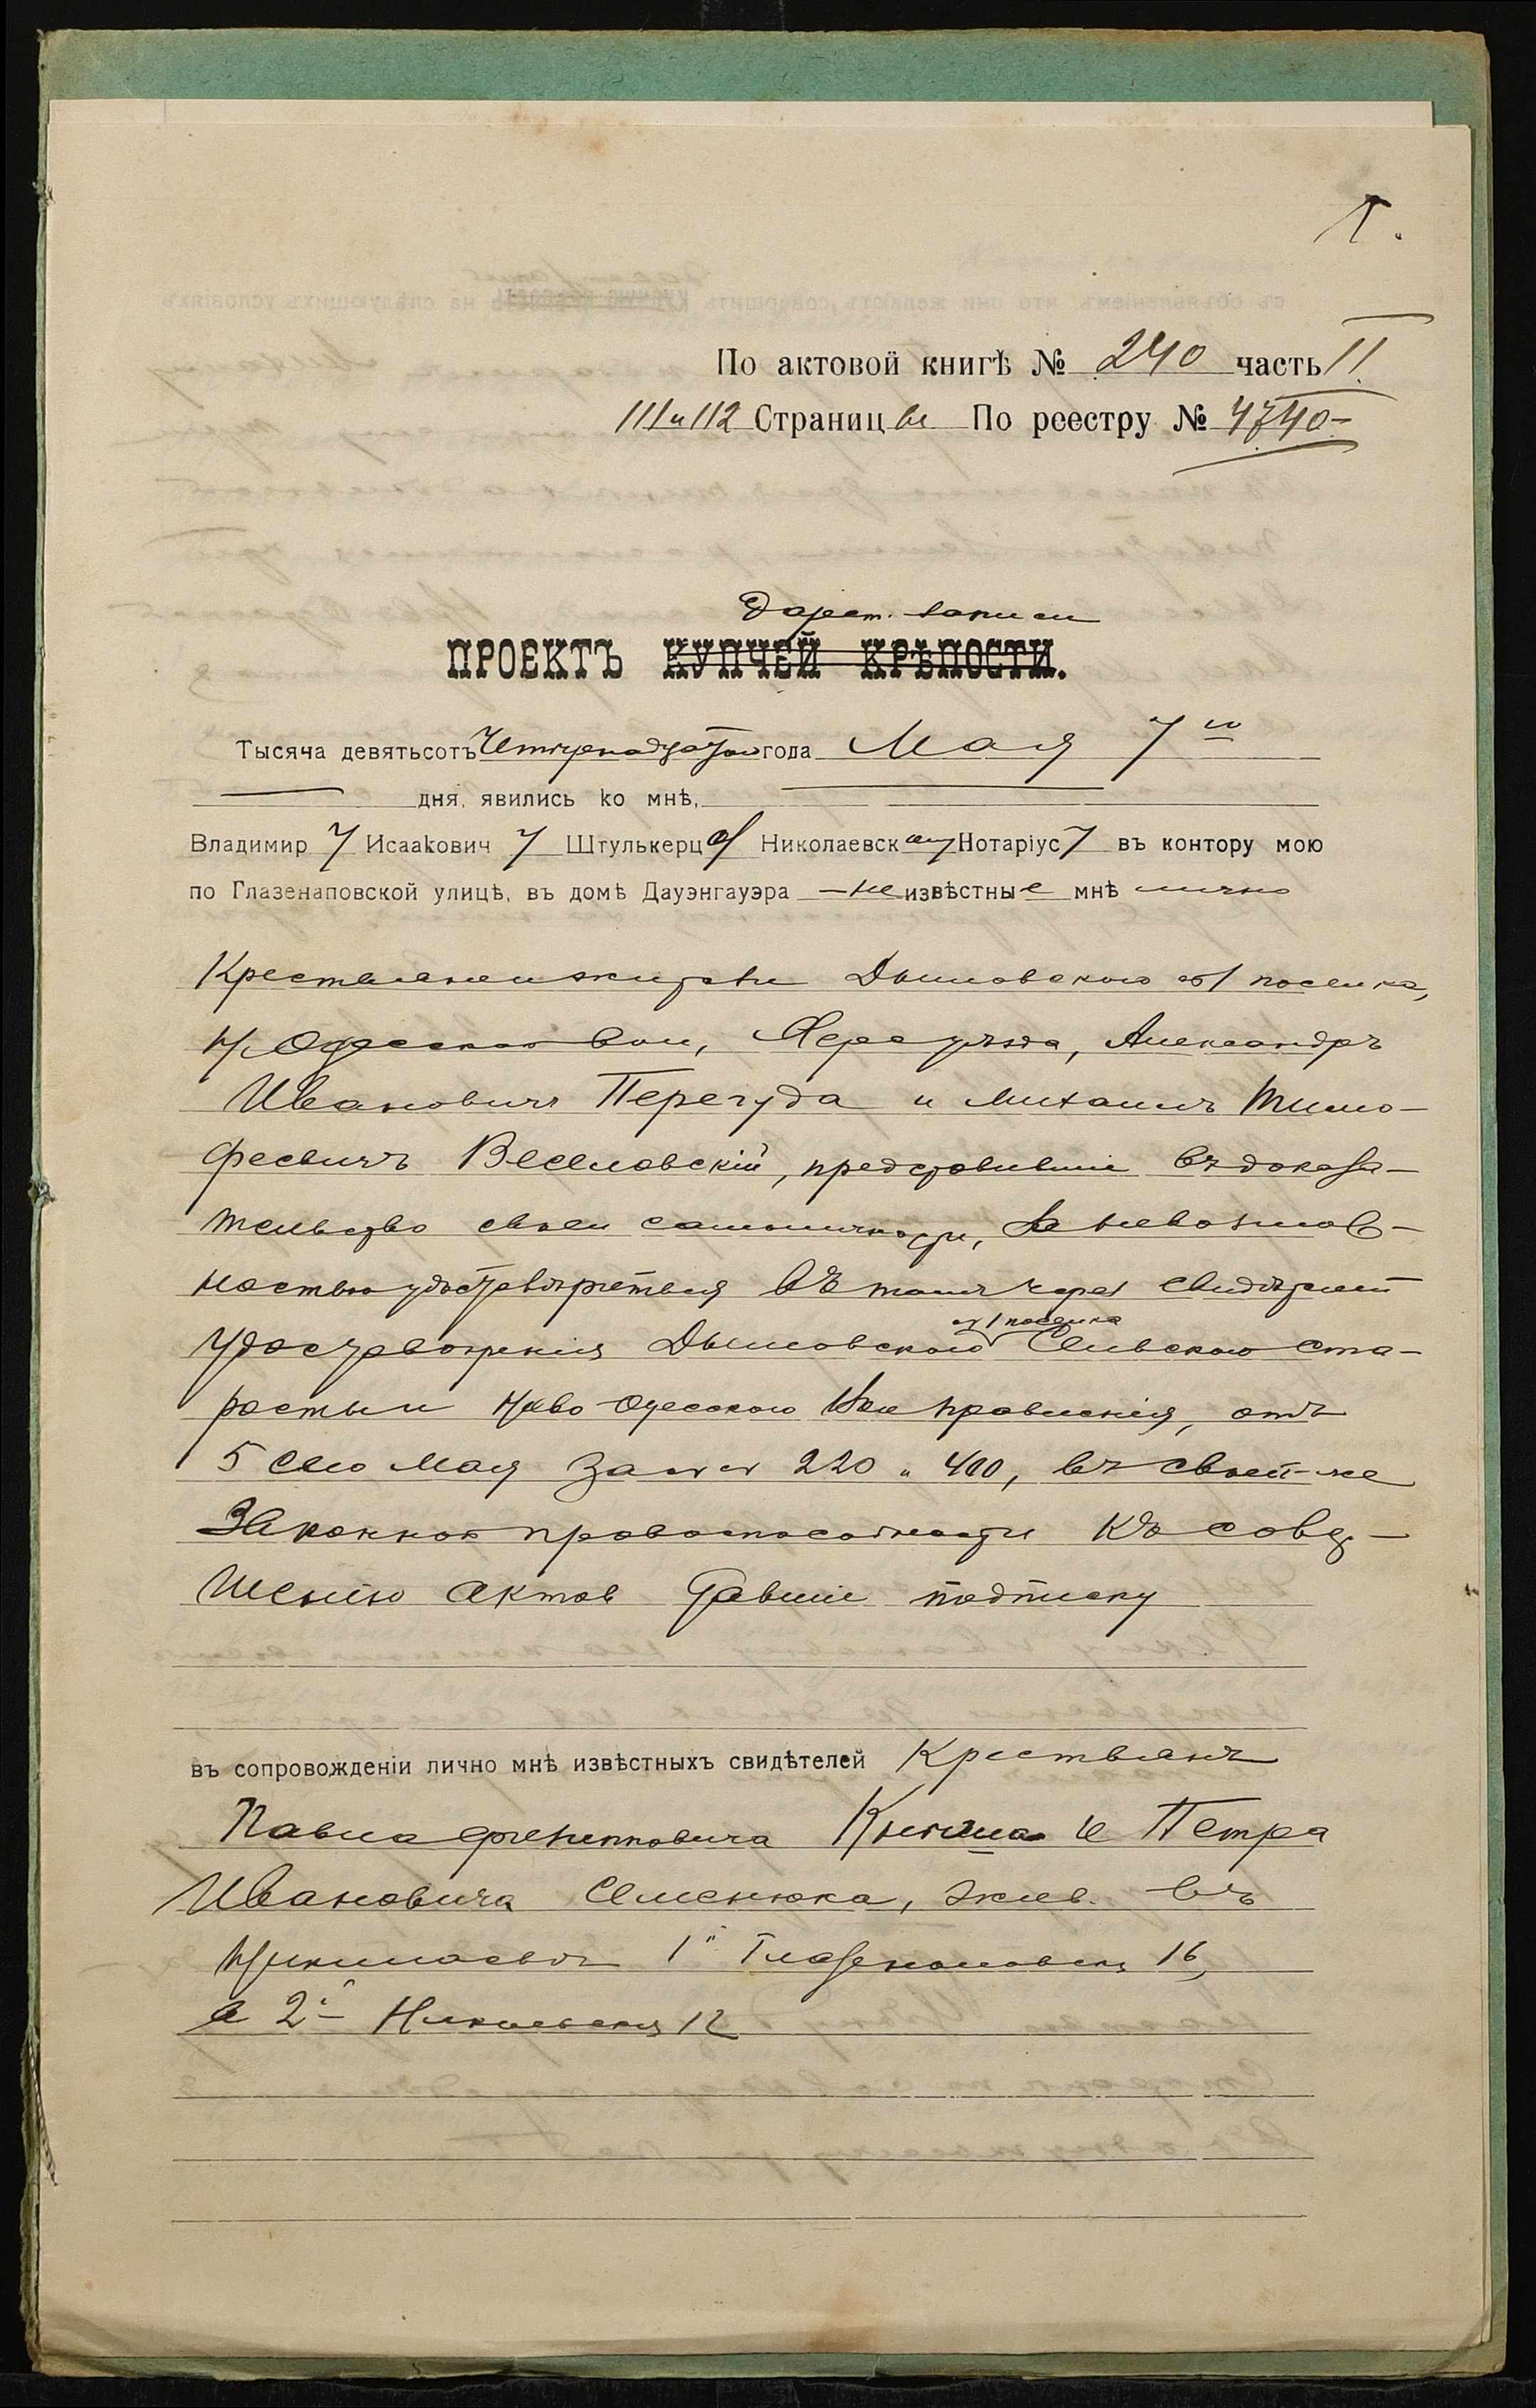 1.
По актовой книгѣ № 240 часть II
111 и 112 Страницы По реестру № 4740
Дарст. записи
ПРОЕКТЪ КУПЧЕЙ КРѢПОСТИ.
Тысяча девятьсотъ Четырнадцатаго года Мая 7 го
дня, явились ко мнѣ,
Владимир у Исаакович у Штулькерцу Николаевскому Нотаріусу въ контору мою
по Глазенаповской улицѣ, въ домѣ Дауэнгауэра — неизвѣстные мнѣ лично
Крестьяне Дымовского поселка,
Н/Одесской вол, Херс уѣзда, Александръ
Ивановичъ Перегуда и Михаилъ Тимо-
феевичъ Веселовскій, представившіе въ доказа-
тельство своей самоличности, за невозмож-
ностью удостовѣриться въ томъ чрез свидѣтелей
поселка
удостовѣренія Дымовского Сельского ста-
росты и Ново-Одесского Вол правленія, отъ
5 сего Мая за №№ 220 и 400, въ своей-же
Законной правоспособности къ совер-
шенію актов давшіе подписку
въ сопровожденіи лично мнѣ извѣстныхъ свидѣтелей Крестьянъ
Павла и Петра
Ивановича Семенюка, жив. въ
Николаевѣ 1й Глазенаповская 16,
а 2й Никольская 12